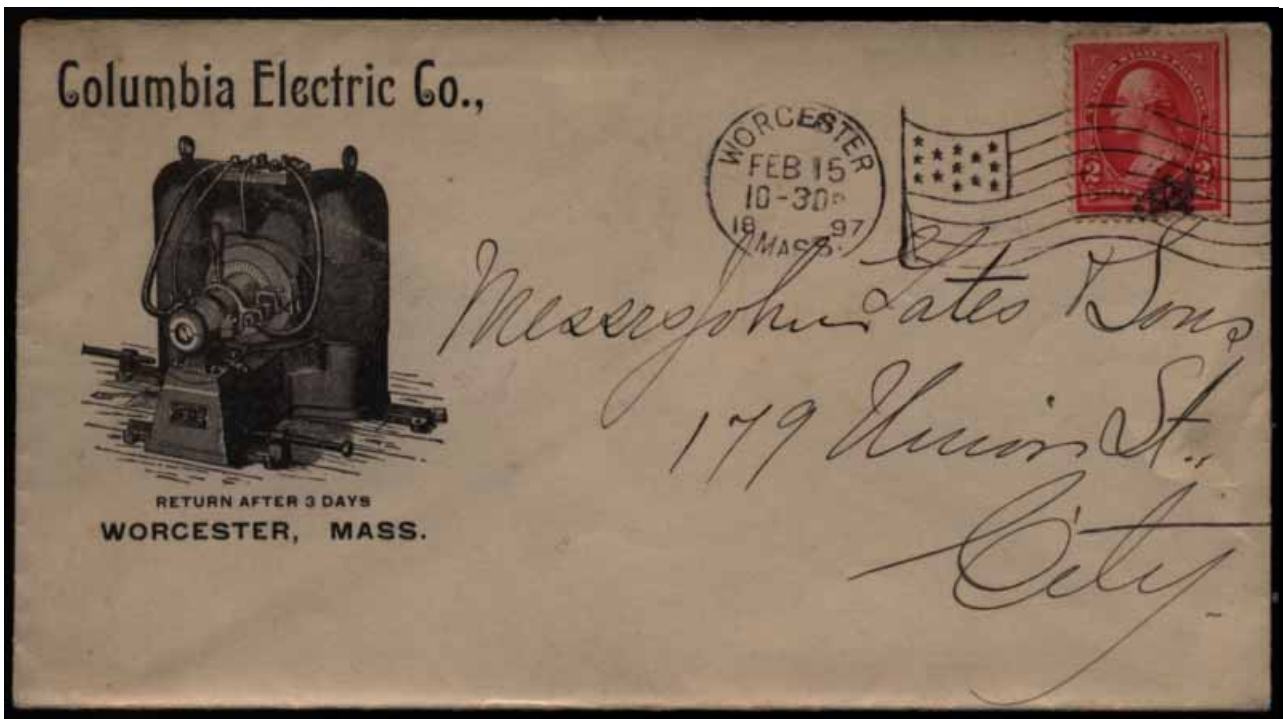 Columbia Electric Co.,
RETURN AFTER 3 DAYS
WORCESTER, MASS.
WORCESTER
FEB 15
10-30P
18 97
MASS.
2 2
Messrs John & Sons
179 Union St.,
City